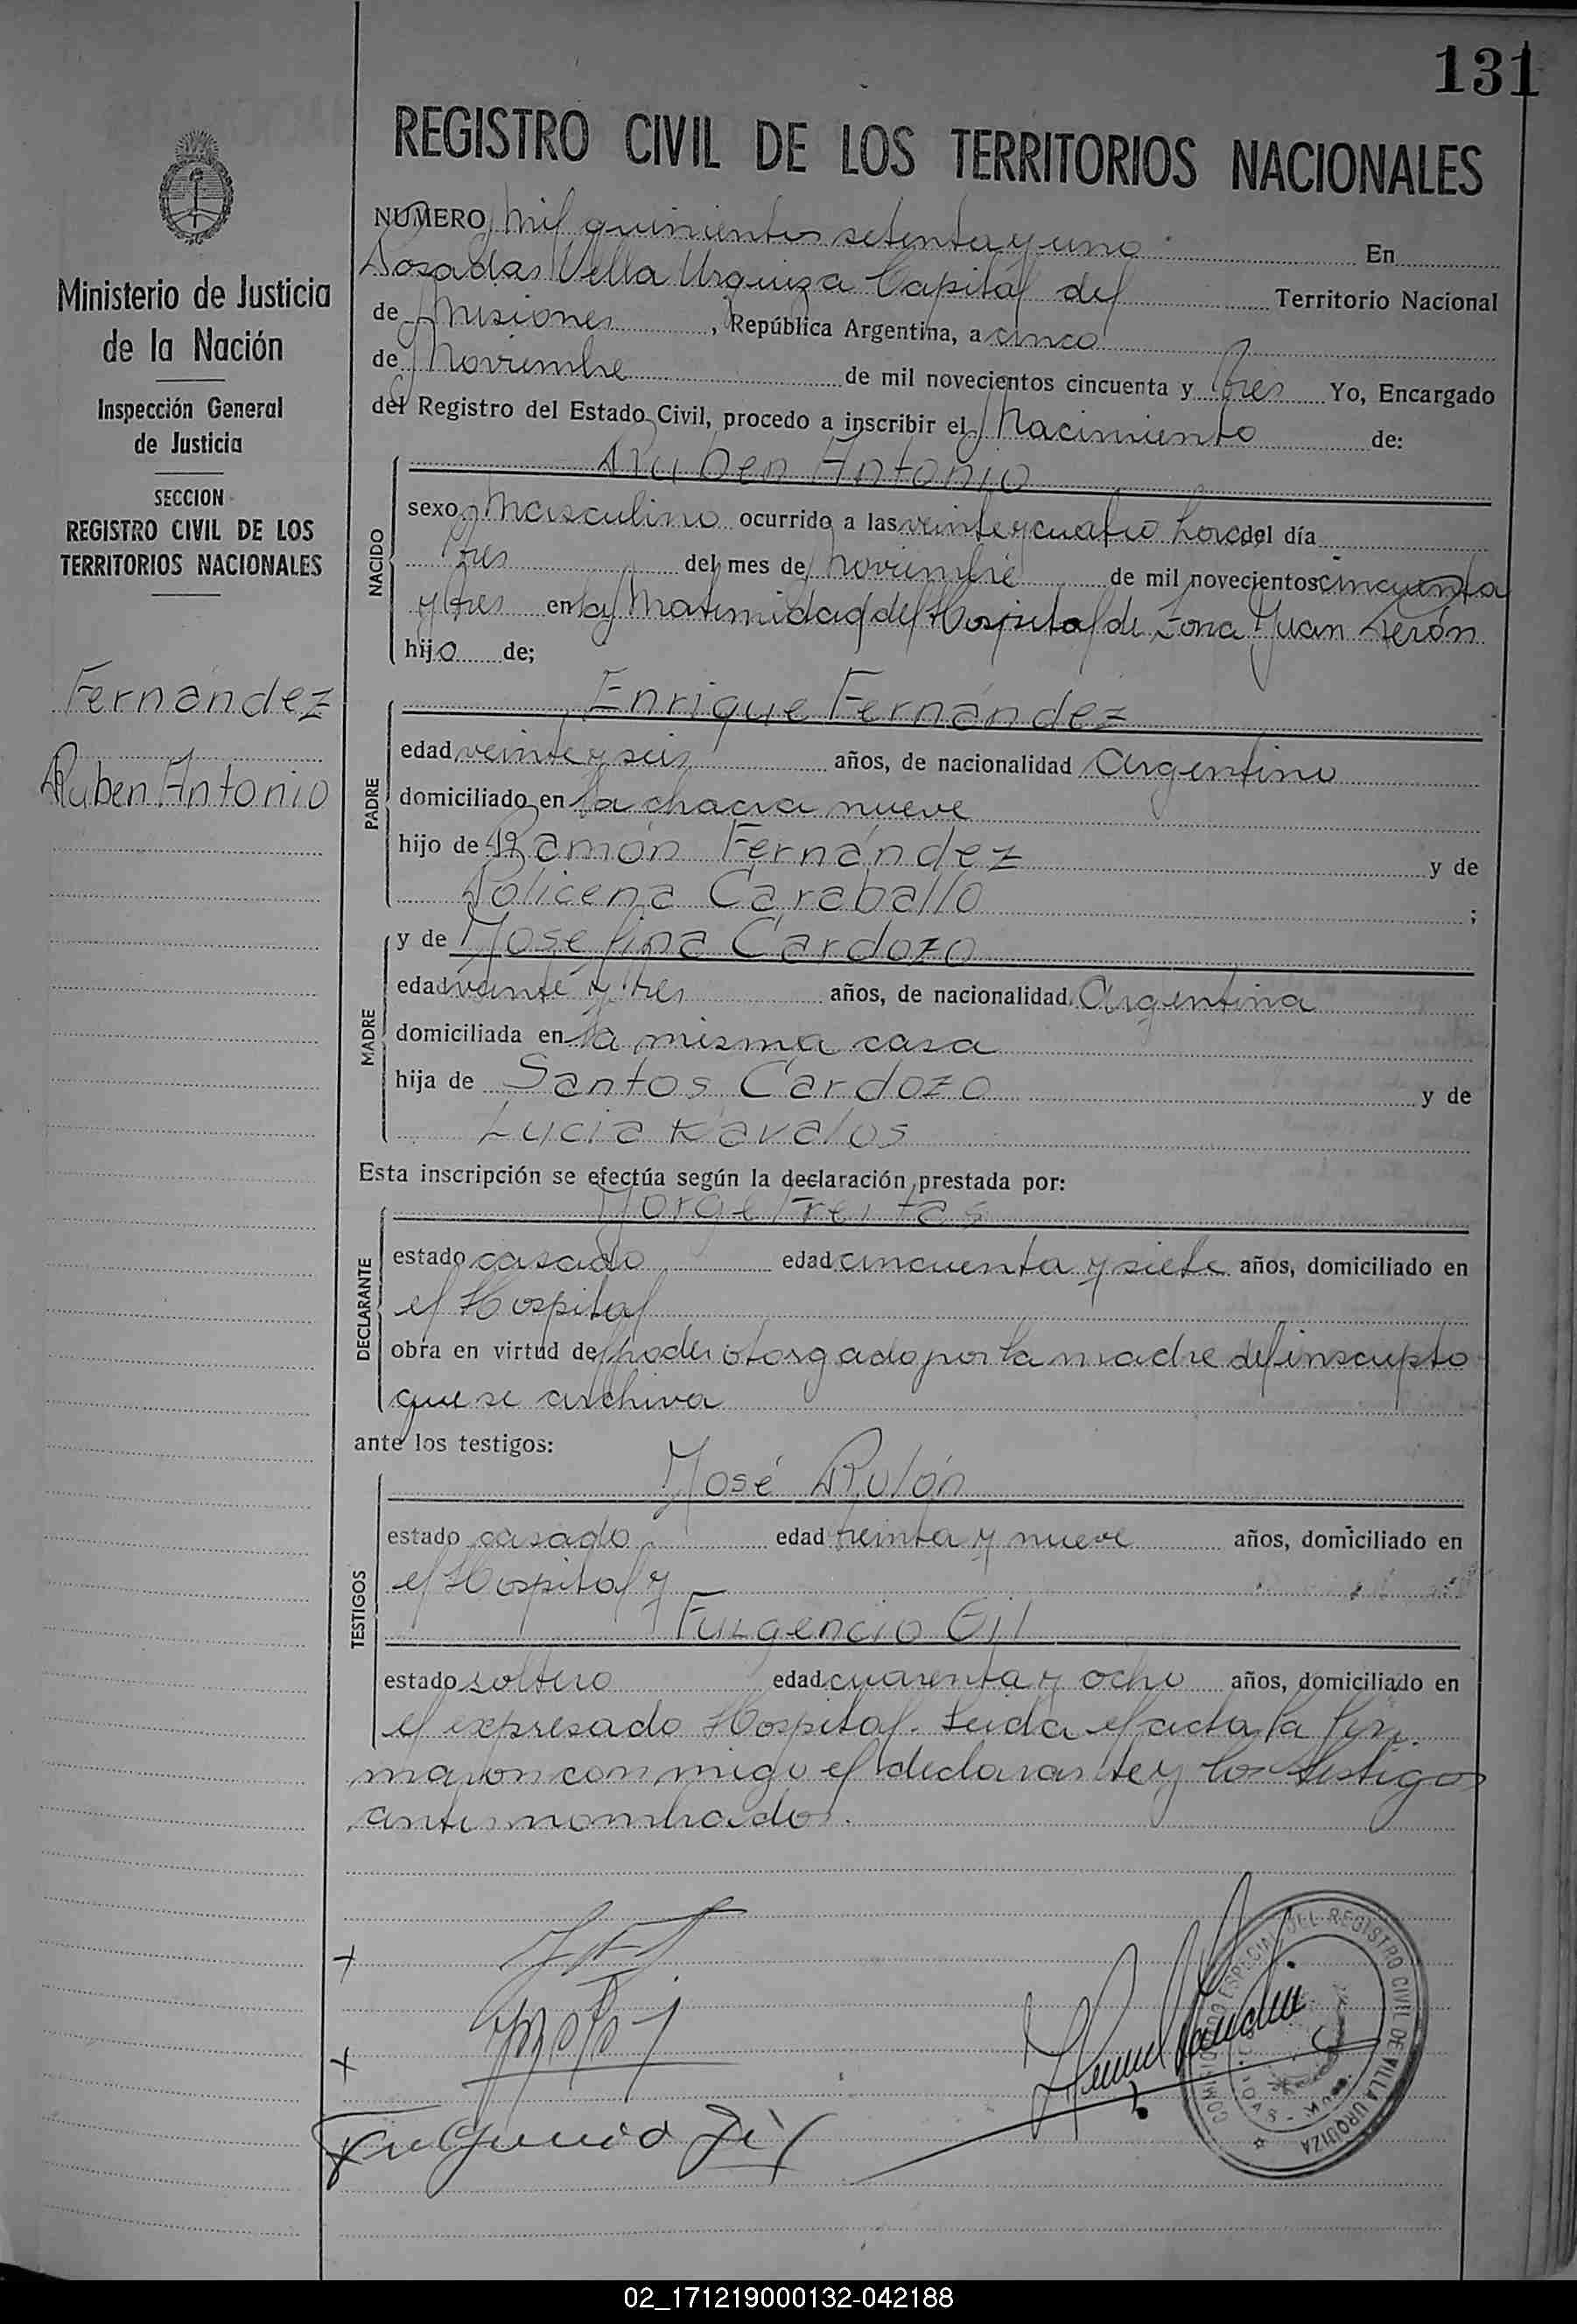 131
REGISTRO CIVIL DE LOS TERRITORIOS NACIONALES
Ministerio de Justicia
de la Nación
Inspección General
de Justicia
SECCION
REGISTRO CIVIL DE LOS
TERRITORIOS NACIONALES
Fernández
Ruben Antonio
NUMERO Mil quinientos setenta y uno En
Posadas Villa Urquiza Capital del Territorio Nacional
de Misiones, República Argentina, a cinco
de Noviembre de mil novecientos cincuenta y tres Yo, Encargado
del Registro del Estado Civil, procedo a inscribir el Nacimiento de:
NACIDO
Ruben Antonio
sexo Masculino ocurrido a las veinte y cuatro horas del día
tres del mes de Noviembre de mil novecientos cincuenta
y tres en la Maternidad del Hospital de Zona Juan Perón
hijo de;
PADRE
Enrique Fernández
edad veinte y seis años, de nacionalidad Argentino
domiciliado en la chacra nueve
hijo de Ramón Fernández y de
Policena Caraballo ;
MADRE
y de Josefina Cardozo
edad veinte y tres años, de nacionalidad Argentina
domiciliada en la misma casa
hija de Santos Cardozo y de
Lucia Kavalos
Esta inscripción se efectúa según la declaración prestada por:
DECLARANTE
Jorge Freitas
estado casado edad cincuenta y siete años, domiciliado en
el Hospital
obra en virtud del poder otorgado por la madre del inscripto
que se archiva
ante los testigos:
TESTIGOS
José Rolón
estado casado edad treinta y nueve años, domiciliado en
el Hospital y
Fulgencio Gil
estado soltero edad cuarenta y ocho años, domiciliado en
el expresado Hospital. Leida el acta la fir-
maron conmigo el declarante y los testigos
antes nombrados.
Fulgencio Gil
COMISIONADO ESPECIAL DEL REGISTRO CIVIL DE VILLA URQUIZA
02_171219000132-042188